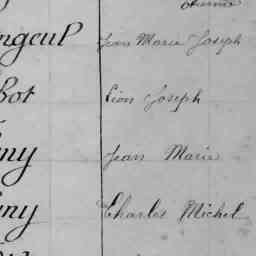 ngeul Jean Marie Joseph
bot Léon Joseph
ny Jean Marie
ny Charles Michel